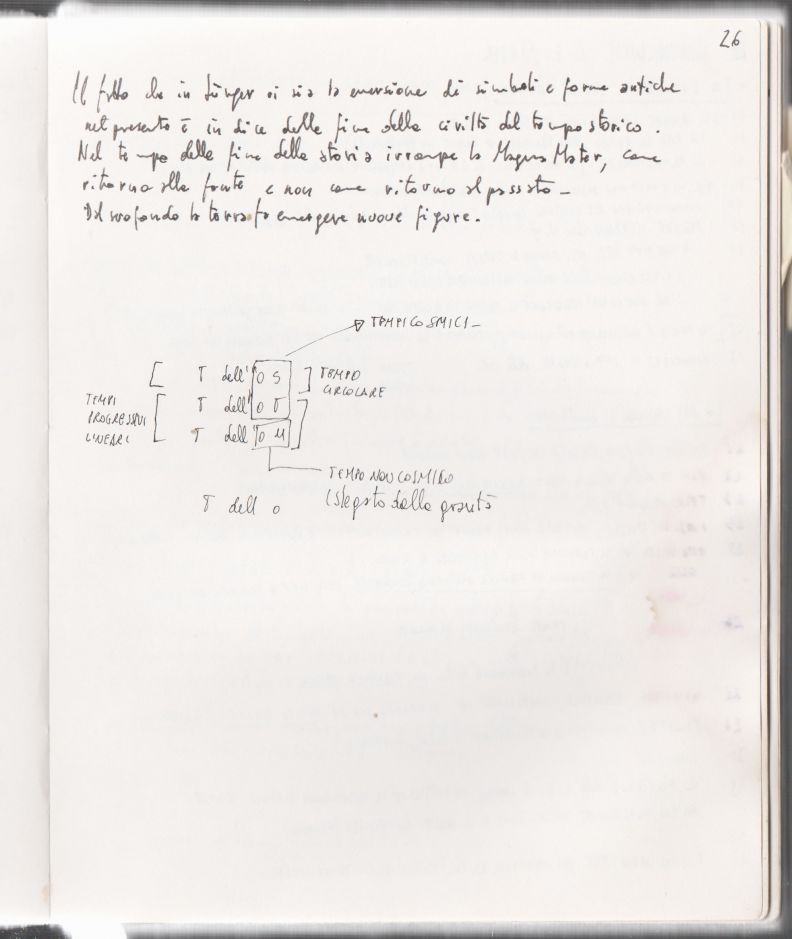 26
Il fatto che in Jünger vi sia la emersione di simboli e forme antiche
nel presente è indice della fine della civiltà del tempo storico.
Nel tempo della fine della storia irrompe la Magna Mater, come
ritorno alla fonte e non come ritorno al passato –
Dal profondo la terra fa emergere nuove figure.
TEMPI COSMICI –
T dell' O S
TEMPO
CIRCOLARE
TEMPI
PROGRESSIVI
LINEARI
T dell' O
T dell' O M
TEMPO NON COSMICO
(slegato dalla gravità
T dell O